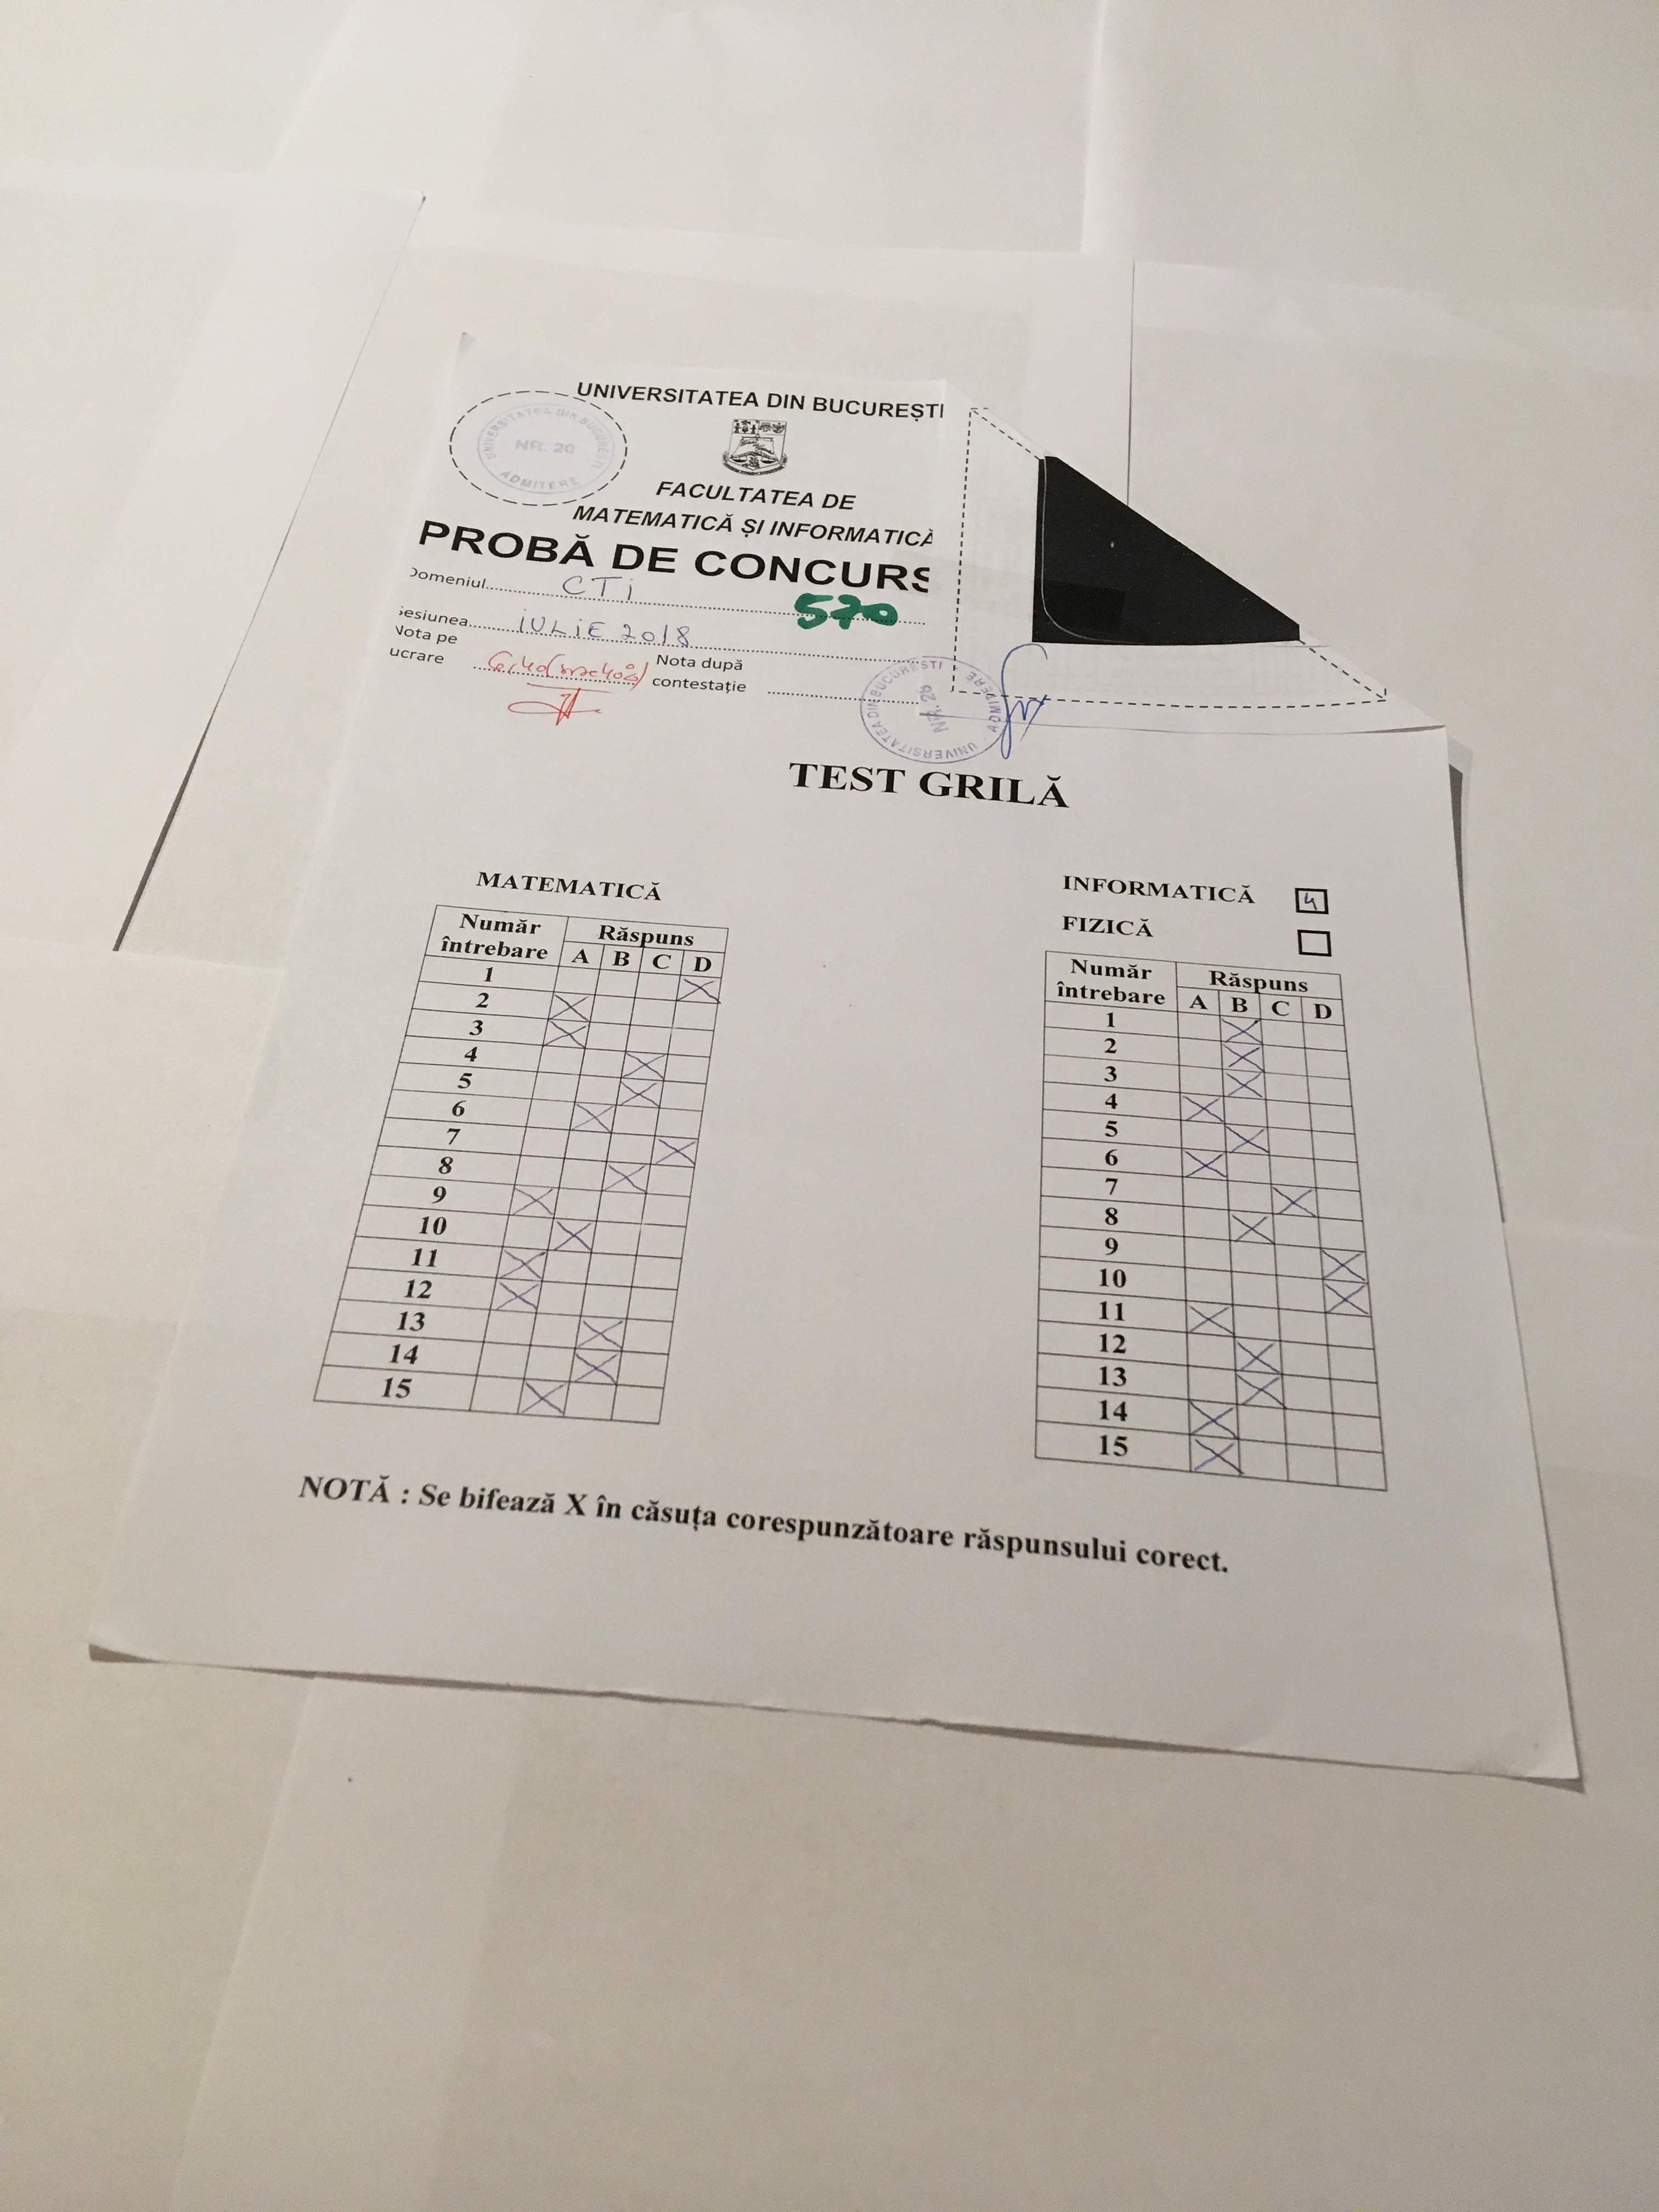 UNIVERSITATEA DIN BUCUREȘTI
UNIVERSITATEA DIN BUCUREȘTI
NR. 20
ADMITERE
FACULTATEA DE
MATEMATICĂ ȘI INFORMATICĂ
PROBĂ DE CONCURS
Domeniul CTi
570
Sesiunea iULiE 2018
Nota pe
lucrare
Nota după
contestație
UNIVERSITATEA DIN BUCUREȘTI
NR. 26
ADMITERE
TEST GRILĂ
MATEMATICĂ
Număr
întrebare
Răspuns
A B C D
1 X
2 X
3 X
4 X
5 X
6 X
7 X
8 X
9 X
10 X
11 X
12 X
13 X
14 X
15 X
INFORMATICĂ 4
FIZICĂ
Număr
întrebare
Răspuns
A B C D
1 X
2 X
3 X
4 X
5 X
6 X
7 X
8 X
9 X
10 X
11 X
12 X
13 X
14 X
15 X
NOTĂ : Se bifează X în căsuța corespunzătoare răspunsului corect.